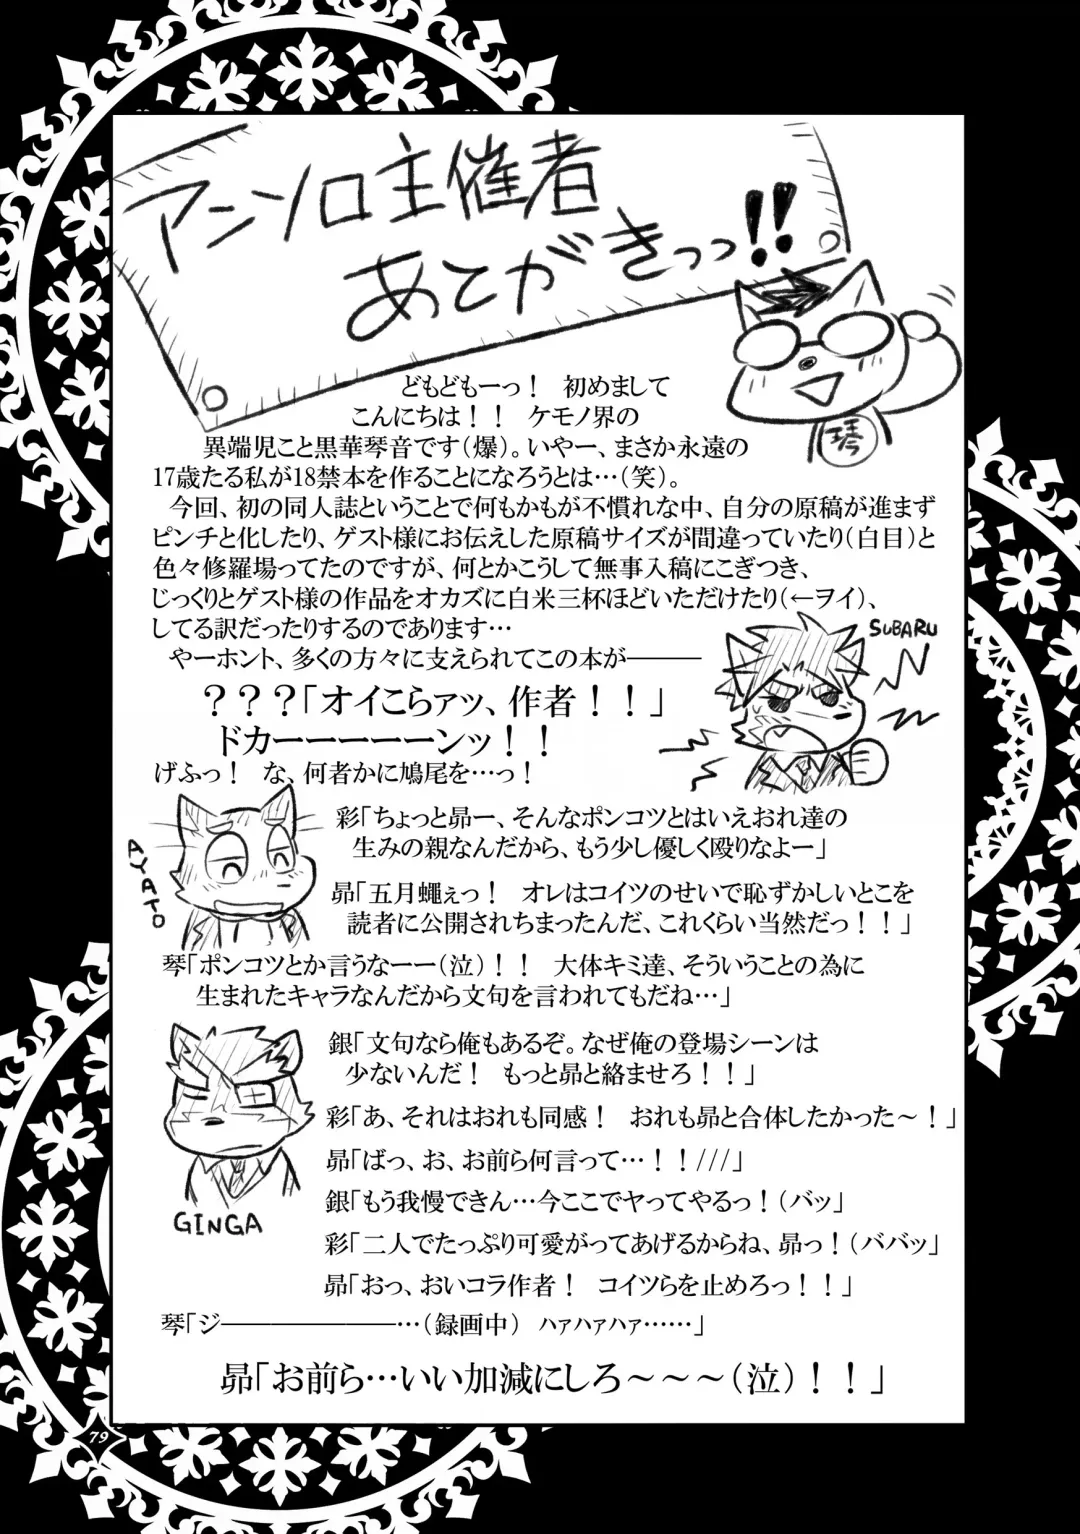 アンソロ主催者
あとがきっっ!!
琴
どもどもーっ！　初めまして
こんにちは！！　ケモノ界の
異端児こと黒華琴音です（爆）。いやー、まさか永遠の
17歳たる私が18禁本を作ることになろうとは…（笑）。
今回、初の同人誌ということで何もかもが不慣れな中、自分の原稿が進まず
ピンチと化したり、ゲスト様にお伝えした原稿サイズが間違っていたり（白目）と
色々修羅場ってたのですが、何とかこうして無事入稿にこぎつき、
じっくりとゲスト様の作品をオカズに白米三杯ほどいただけたり（←ヲイ）、
してる訳だったりするのであります…
SUBARU
やーホント、多くの方々に支えられてこの本が―――
？？？「オイこらァッ、作者！！」
ドカーーーーーンッ！！
げふっ！　な、何者かに鳩尾を…っ！
AYATO
彩「ちょっと昴ー、そんなポンコツとはいえおれ達の
生みの親なんだから、もう少し優しく殴りなよー」
昴「五月蠅ぇっ！　オレはコイツのせいで恥ずかしいとこを
読者に公開されちまったんだ、これくらい当然だっ！！」
琴「ポンコツとか言うなーー（泣）！！　大体キミ達、そういうことの為に
生まれたキャラなんだから文句を言われてもだね…」
銀「文句なら俺もあるぞ。なぜ俺の登場シーンは
少ないんだ！　もっと昴と絡ませろ！！」
彩「あ、それはおれも同感！　おれも昴と合体したかった～！」
昴「ばっ、お、お前ら何言って…！！///」
GINGA
銀「もう我慢できん…今ここでヤってやるっ！（バッ」
彩「二人でたっぷり可愛がってあげるからね、昴っ！（ババッ」
昴「おっ、おいコラ作者！　コイツらを止めろっ！！」
琴「ジ―――――――…（録画中）　ハァハァハァ……」
昴「お前ら…いい加減にしろ～～～（泣）！！」
79